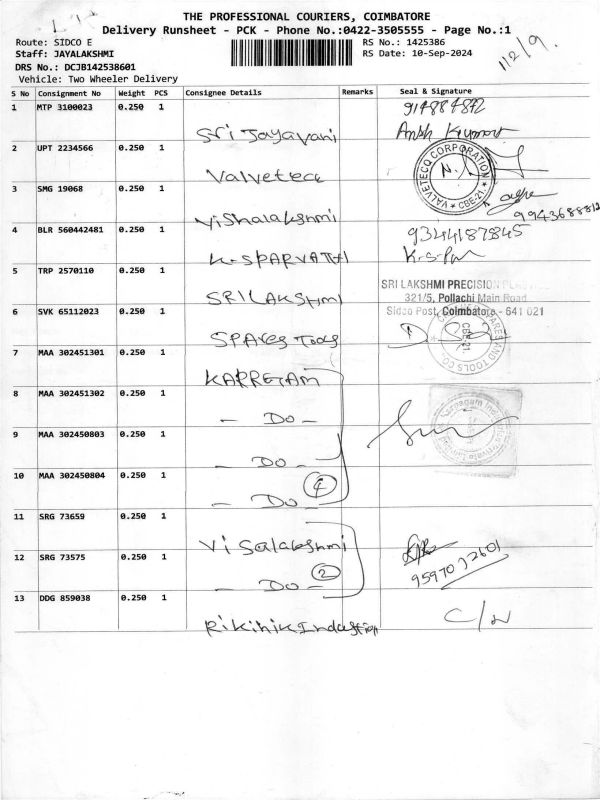 THE PROFESSIONAL COURIERS, COIMBATORE
Delivery Runsheet - PCK - Phone No.:0422-3505555 - Page No.:1
Route: SIDCO E
RS No.: 1425386
Staff: JAYALAKSHMI
RS Date: 10-Sep-2024
DRS No.: DCJB142538601
Vehicle: Two Wheeler Delivery
S No Consignment No Weight PCS Consignee Details Remarks Seal & Signature
1 MTP 3100023 0.250 1 Sri Jayavani
Ansh Kumar
2 UPT 2234566 0.250 1 Valvetecc
VALVETECQ CORPORATION * CBE-21. *
3 SMG 19068 0.250 1 Vishalakshmi
9943688812
4 BLR 560442481 0.250 1 K.S PARVATHI 9344187845
K.S.Par
5 TRP 2570110 0.250 1 SRI LAKSHMI
SRI LAKSHMI PRECISION
321/5, Pollachi Main Road
Sidco Post, Coimbatore - 641 021
6 SVK 65112023 0.250 1 SPARES Tools
SPARES AND TOOLS CO. CBE-21.
7 MAA 302451301 0.250 1 KARPEGAM
8 MAA 302451302 0.250 1 - Do -
9 MAA 302450803 0.250 1 - Do -
10 MAA 302450804 0.250 1 - Do - 4
11 SRG 73659 0.250 1 Visalakshmi
12 SRG 73575 0.250 1 - Do - 2
9597072601
13 DDG 859038 0.250 1 Rikinik Industries C/N